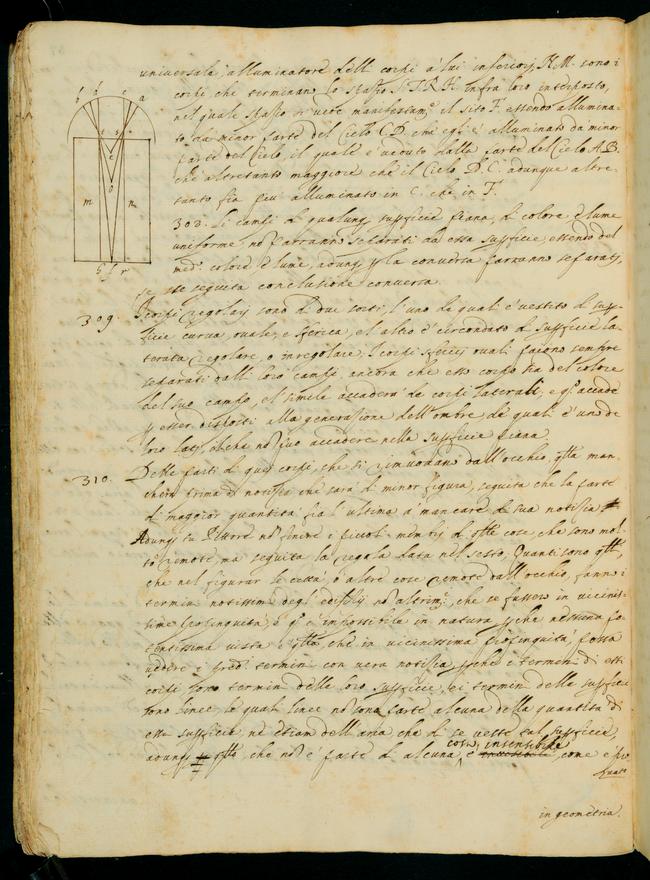 universale alluminatore dell corpi à lui inferiorj. N.M. sono i
corpi che terminano lo spatio S.T.R.H. infra loro interposto,
nel quale spatio si vede manifestam.e il sito F. essendo allumina-
to da minor parte del Cielo C.D. che egl' è alluminato da minor
parte del Cielo, il quale è veduto dalla parte del Cielo A.B.
che altretanto maggiore che il Cielo D.C. adunque altre-
tanto fia più alluminato in C. che in F.
308. Li campi di qualunq superficie piana, di colore e lume
uniforme no parranno separati da essa superficie, essendo del
med.o colore e lume, adunq p la conversa parranno separatj,
se seguita conclusione conversa.
309. I corpi regolarj sono di due sorti, l'uno de quali è vestito di sup-
ficie curva, ovale, e sferica, et altro è circondato di superficie la-
terata regolare, o inregolare. I corpi sfericj ovali paiono sempre
separati dall loro campj, ancora che esso corpo sia del colore
del suo campo, et simile accaderà de corpi laterali, e q.o accade
p esser disposti alla generatione dell'ombre da quali è uno de
loro latj, ilche no può accadere nella superficie piana.
310. Delle parti di quej corpi, che si rimuovano dall'occhio, qlla man-
cherà prima di notitia che sarà di minor figura, seguita che la parte
di maggior quantità fia l'ultima a mancare di sua notitia
Adunq tu Pittore no finire i piccoli membrj di qlle cose, che sono mol-
to remote, ma seguita la regola data nel sesto. Quanti sono qllj,
che nel figurar le città, o altre cose remote dall'occhio, fanno i
termini notissimi degl' edifitij no altrim.i che se fussero in vicinis-
sime propinquità, e q.o è impossibile in natura pche nessuna po-
tentissima vista è qlla che in vicinissima propinquità, possa
vedere i pred.i termini con vera notitia, pche i termini di essi
corpi sono termini delle loro superficie, e i termini delle superficie
sono linee, le quali linee no sono parte alcuna della quantità di
essa superficie, nè etiam dell'aria che di se veste tal superficie,
adunq qllo che no è parte di alcuna cosa, è insensibile come è pro-
vato
in geometria.
b d c a
m n